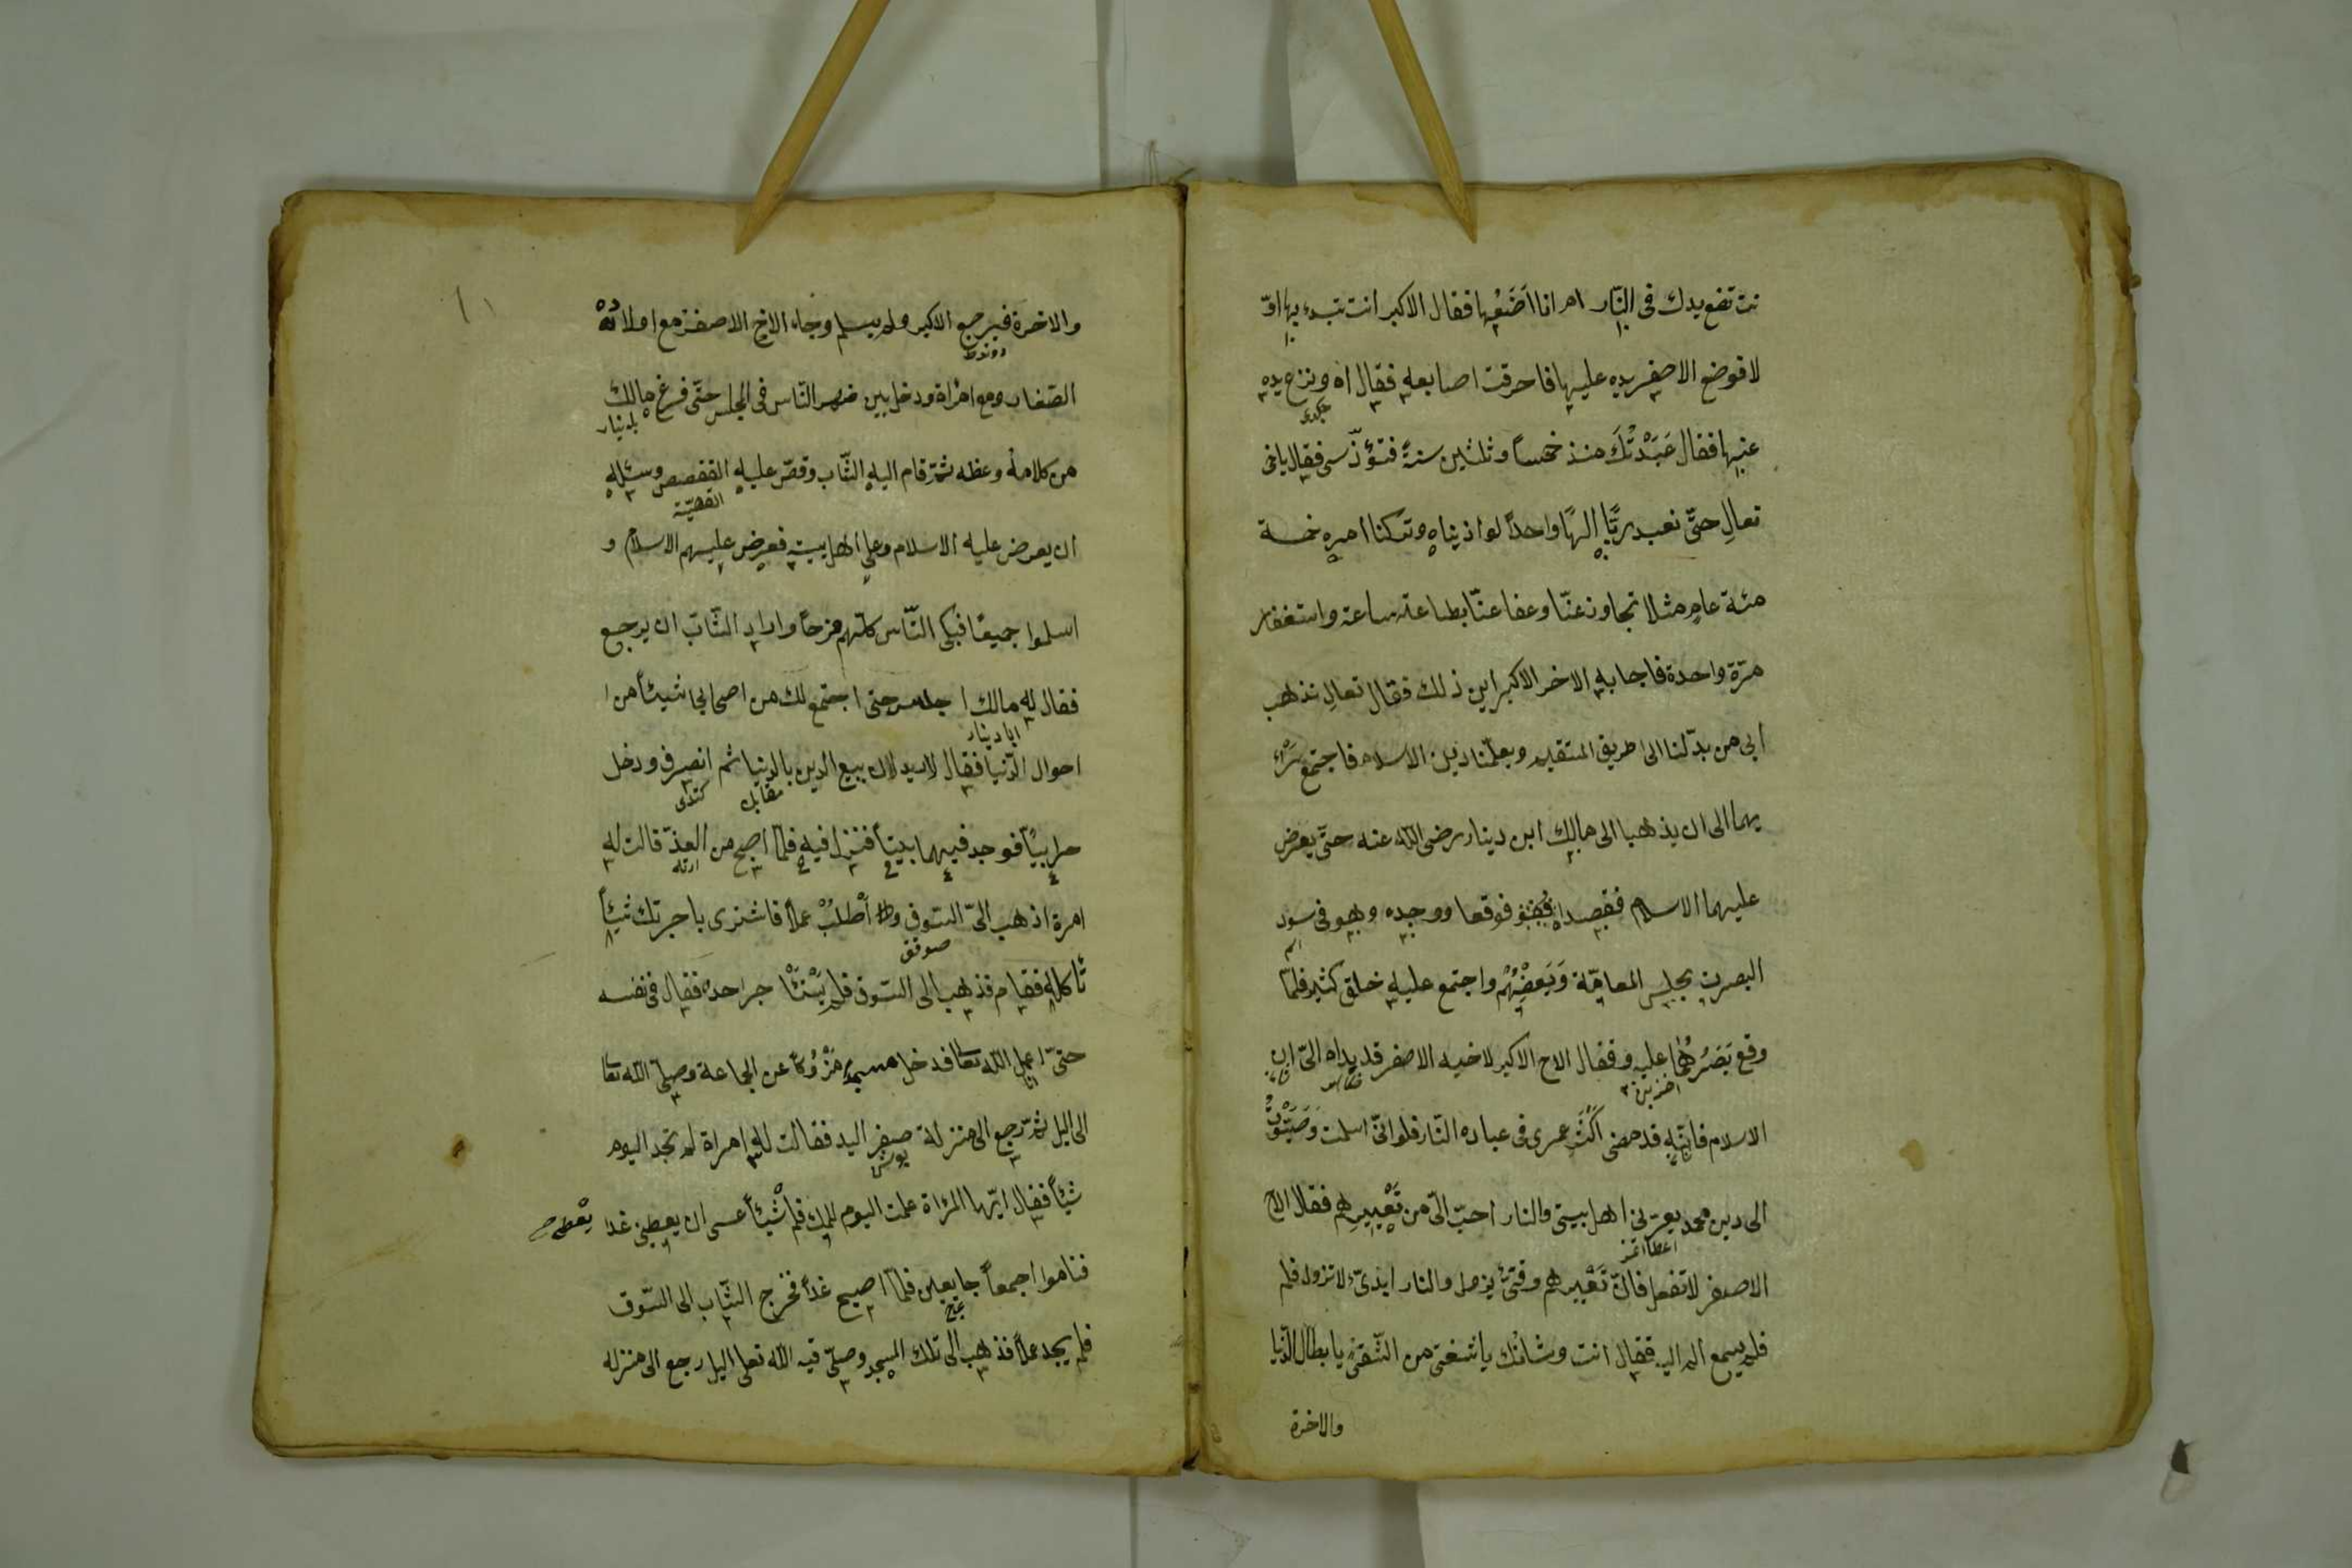 نت تضع يدك فى النّار ام انا اَضَعُها فقال الاكبر انت تبدء بها اوّ
لا فوضع الاصغر يده عليها فاحرقت اصابعه فقال اه ونزع يده
عنها فقال عَبَدْتُكَ منذ خمسًا وثلثين سنةً فتؤذّسى فقال ياخى
تعالِ حتّى نعبد ربًّا الهًا واحدًا لو اذيناه وتركنا امره خمسة
مئة عامٍ مثلا تجاوز عنّا وعفا عنّا بطاعة ساعة واستغفار
مرّة واحدة فاجابه الاخر الاكبر اين ذلك فقال تعالِ نذهب
الى من يدلّنا الى طريق المتقيم ويعلّمنا دين الاسلام فاجتمع
يهما الى ان يذهبا الى مالك ابن دينار رضى اللّه عنه حتّى يعرض
عليهما الاسلام فقصداه فوقعا ووجده وهو فى سود
البصرة بجلس المعامّة وَيَعِضُهُمْ واجتمع عليه خلق كثير فلمّا
وقع بَصَرُهُما عليه وفقال الاخ الاكبر لاخيه الاصغر قد بداه الىّ ان
الاسلام فانّه قد مضى اكثر عمرى فى عباده النّار فلو انّى اسلمت
الى دين محمد يعرنى اهل بيتى والنار احبّ الىّ من تَعْبِيرِهم فقال الاخ
الاصغر لا تفعل فانّ تَعْبِيرهم وقتىّ يزول والنار ابدىّ لا تزول فلم
فلم يسمع اليه فقال انت وشانك ياشغتى من الشّقىّ يا بطّال الدّنيا
والاخرة
والاخرة فيرجع الاكبر ولم يسلم وجاء الاخ الاصغر مع اولاده
الصّغار ومع امراة ودخل بين النّاس فى المجلس حتّى فرغ مالك
بلدينار
من كلامه وعظه ثمّ قام اليه الثّاب وقصّ عليه القفصص وسئله
القصّيّة
ان يعرض عليه الاسلام وعلى اهل بيته فعرض عليهم الاسلام و
اسلموا جميعًا فبكى النّاس كلّهم فرحًا واراد الثّاب ان يرجع
فقال له مالك اجلس حتى اجتمع لك من اصحابى شيئًا من ا
ابا دينار
احوال الدّنيا فقال لا اريد لان بيع الدين بالدنيا ثم انصرف ودخل
مقابل
حرابيًا فوجد فيهما بيتًا فنزل فيه فلمّا اصبح من الغدّ قالت له
امرة اذهب الىّ السّوق واطْلُبْ عملًا فاشترى باجرتك شيئًا
تأكله فقام فذهب الى السّوق فلم جراحده فقال فى نفسه
حتّى اعمل للّه تعالى فدخل مسجدًا عن الجماعة وصلّى اللّه تعالى
الى اليل ثمّ رجع الى منزلة صفر اليد فقالت له امراة لم تجد اليوم
شيئًا فقال ايّها المرأة عملت اليوم للملك فلم شيئًا عسى ان يعطينى غدا
فناموا اجمعًا جايعين فلمّا اصبح غدًا فخرج الثّاب الى السّوق
فلم يجد عملًا فذهب الى تلك المسجد وصلّى فيه اللّه تعالى اليل رجع الى منزله